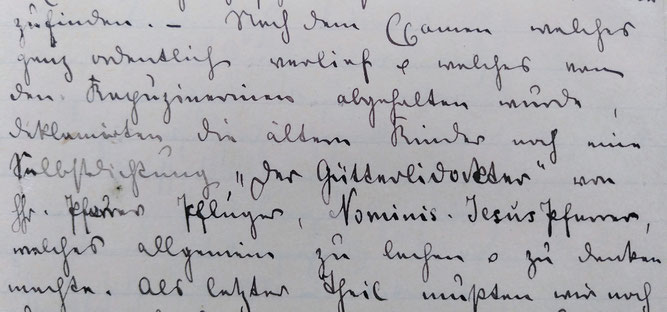 zufinden. – Nach dem Examen welches
ganz ordentlich verlief & welches von
den Kapuzinerinen abgehalten wurde,
deklamirten die ältern Kinder noch eine
Selbstdichtung, „der Gütterlidokter" von
Hr. Pfarrer Pflüger, Nominis. Jesus Pfarrer,
welches allgemein zu lachen & zu denken
machte. Als letzter Theil mußten wir noch